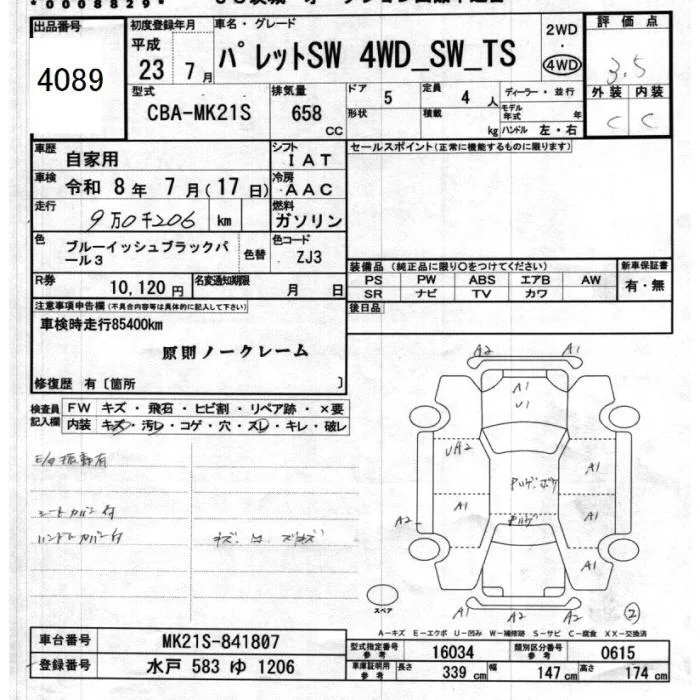 *0008829*
出品番号 初度登録年月 車名・グレード 2WD 評価点
4089 平成 23年 7月 パレットSW 4WD_SW_TS ・ 4WD 3.5
型式 排気量 ドア 5 定員 4人 ディーラー・並行 外装 内装
CBA-MK21S 658 CC 形状 積載 kg モデル年式 年 ハンドル 左・右 C C
車歴 自家用 シフト IAT セールスポイント(正常に機能するものに限ります)
車検 令和 8年 7月(17日) 冷房 AAC
走行 9万0千206 km 燃料 ガソリン
色 ブルーイッシュブラックパール3 色替 色コード ZJ3
装備品 (純正品に限り○をつけてください) 新車保証書
PS PW ABS エアB AW 有・無
SR ナビ TV カワ
R券 10,120円 名変通知期限 月 日
後日品
注意事項申告欄(不具合内容等は具体的に記入して下さい)
車検時走行85400km
原則ノークレーム
修復歴 有〔箇所 〕
検査員記入欄 FW キズ・飛石・ヒビ割・リペア跡・×要
内装 キズ・汚レ・コゲ・穴・スレ・キレ・破レ
E/g 振動有
シートカバー付
ハンドルカバー付
A2 A1
A1
U1
UA2 A1
A1 A1
A2
A1
A1 A2 A2
スペア
②
A－キズ E－エクボ U－凹み W－補修跡 S－サビ C－腐食 XX－交換済
車台番号 MK21S-841807 型式指定番号 参考 16034 類別区分番号 参考 0615
登録番号 水戸 583 ゆ 1206 車庫証明用 参考 長さ 339 cm 幅 147 cm 高さ 174 cm